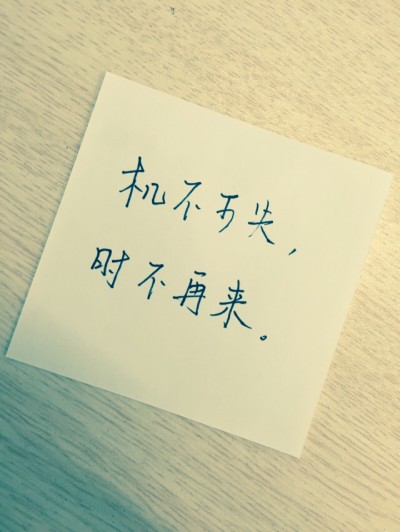 机不可失，
时不再来。